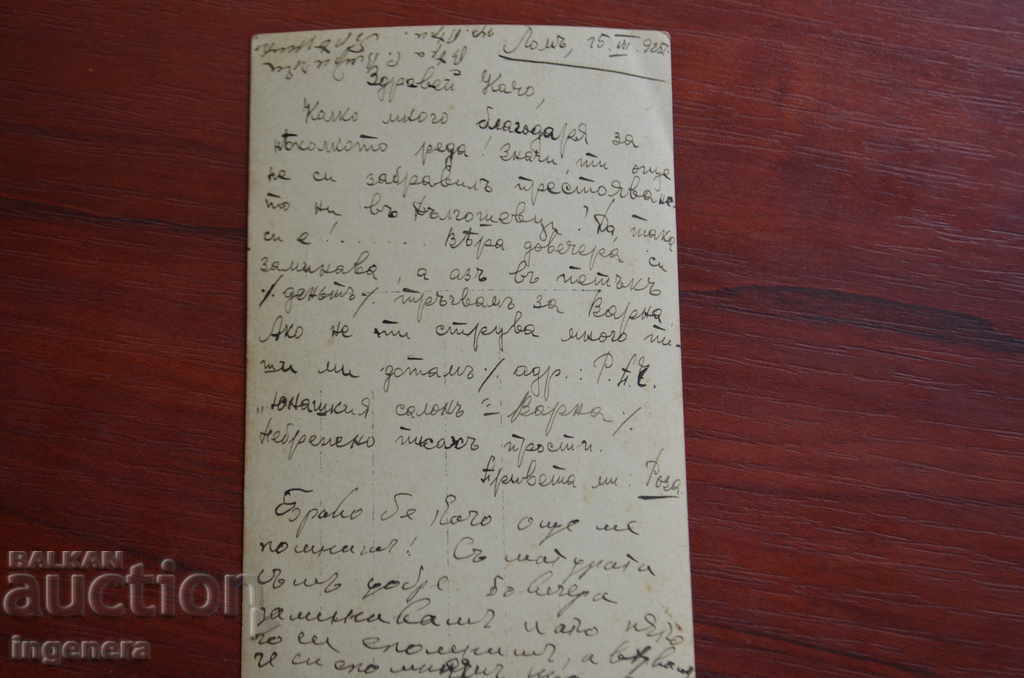 Ломъ, 15. III 925 г.
Вѣра С.
Здравей Кочо,
Колко много благодаря за
нѣколкото реда! Значи, ти още
не си забравилъ престояване-
то ни въ Дългошевци! На, така
си е! . . . . . . Вѣра довечера си
заминава, а азъ въ петъкъ
/ деньтъ / тръгвамъ за Варна.
Ако не ти струва много пи-
ши ми дотамъ / адр.: Р.
„Юнашкия салонъ" – Варна /
Небрежно писахъ прости.
Привета ми: Роза
Браво бе Кочо още ме
помнишъ! Съ матурата
съмъ добре довечера
заминавамъ и ако нѣко-
го си спомнишъ, а вѣрвамъ
че си спомняшъ
BALKAN
auction
ingenera